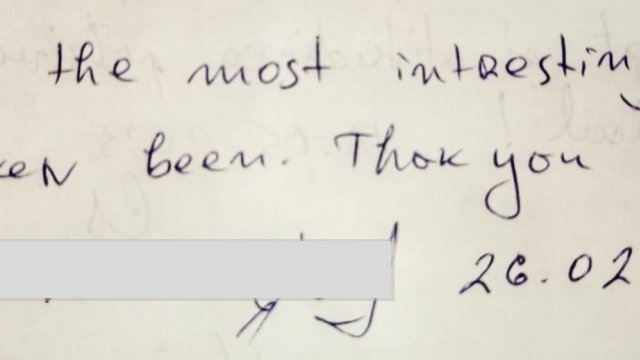 the most intresting
been. Thak you
26.02